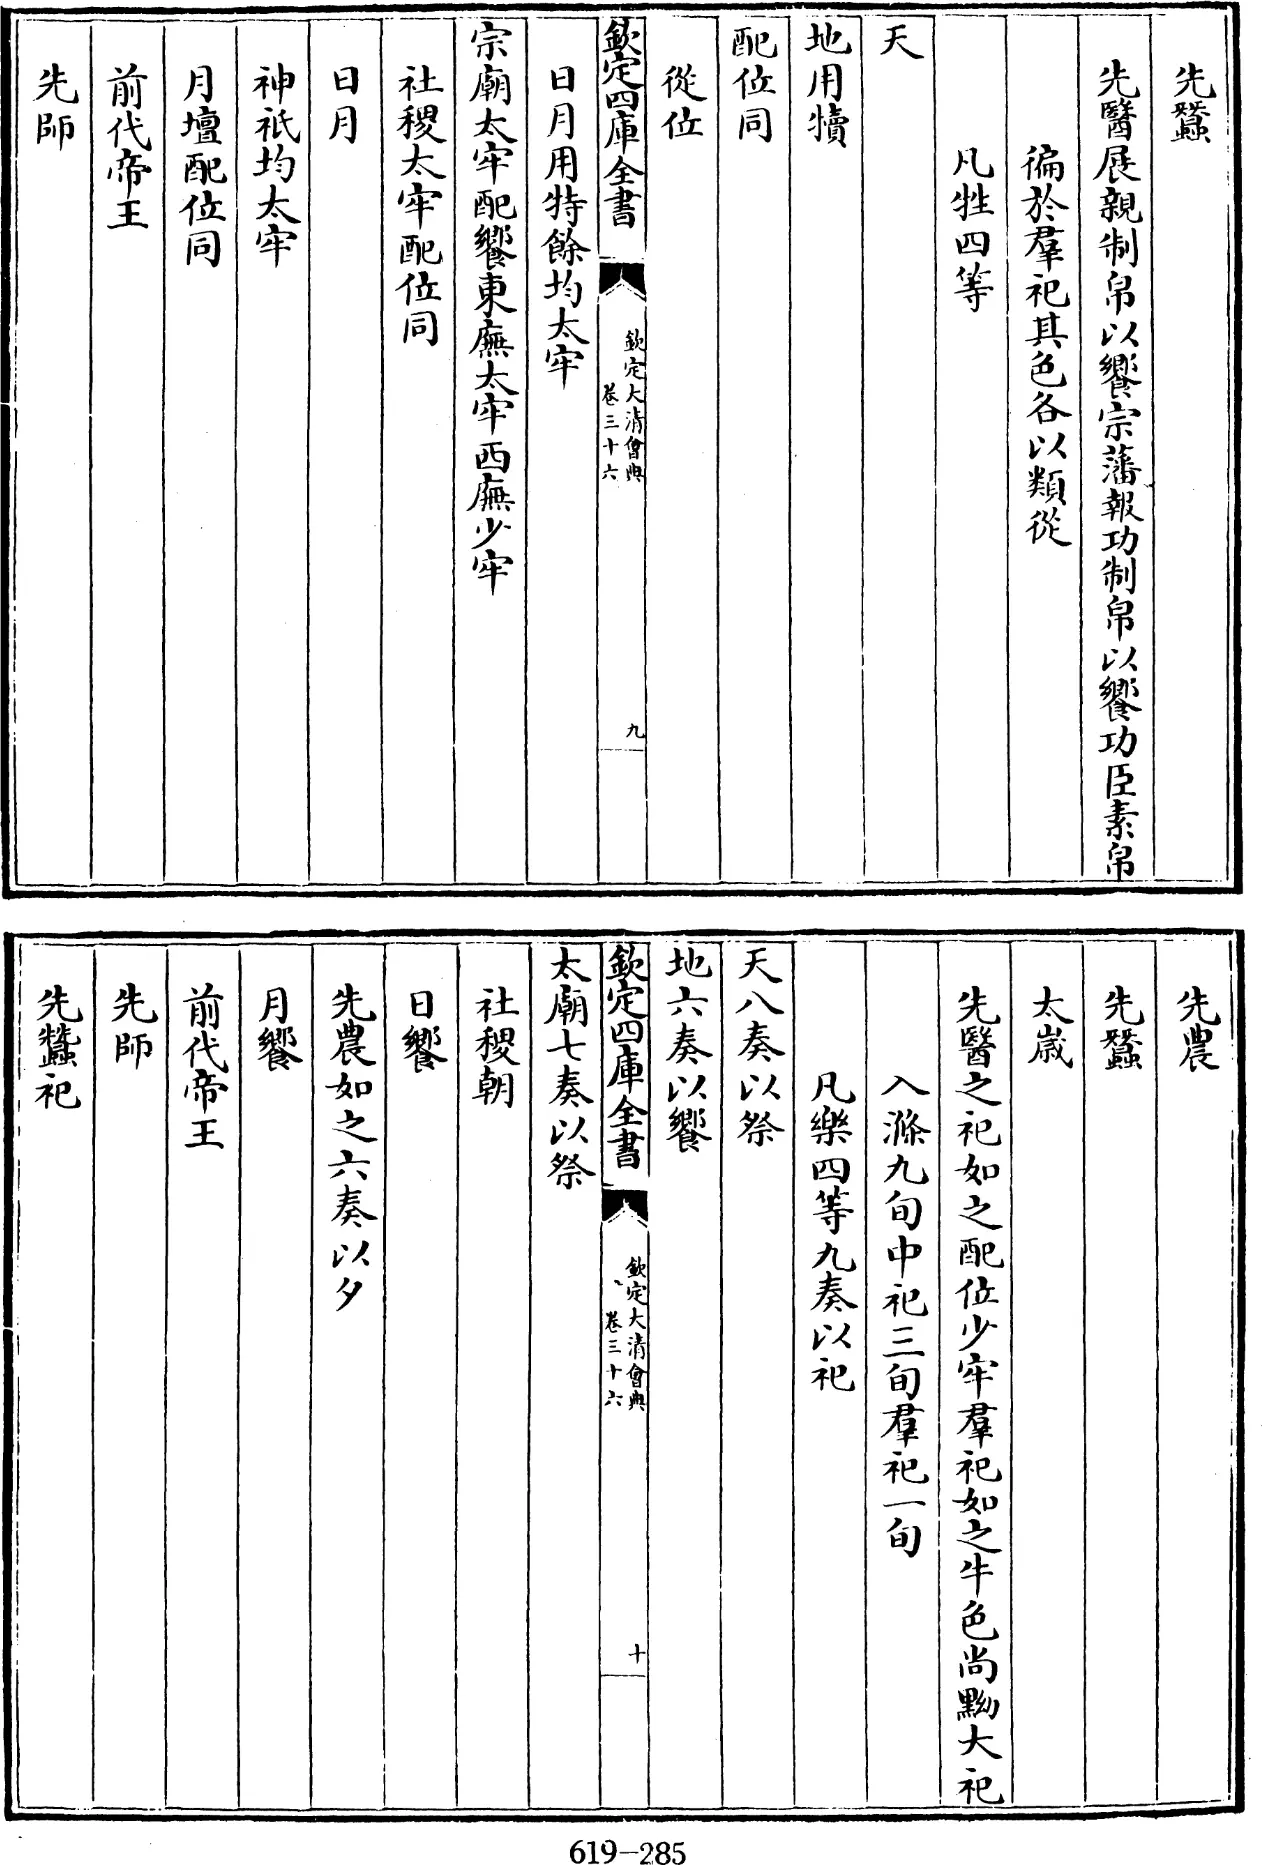 先蠶
先醫展親制帛以饗宗藩報功制帛以饗功臣素帛
徧於羣祀其色各以類從
凡牲四等
天
地用犢
配位同
從位
欽定四庫全書
欽定大清會典
卷三十六
九
日月用特餘均太牢
宗廟太牢配饗東廡太牢西廡少牢
社稷太牢配位同
日月
神祇均太牢
月壇配位同
前代帝王
先師
先農
先蠶
太歲
先醫之祀如之配位少牢羣祀如之牛色尚黝大祀
入滌九旬中祀三旬羣祀一旬
凡樂四等九奏以祀
天八奏以祭
地六奏以饗
欽定四庫全書
欽定大清會典
卷三十六
十
太廟七奏以祭
社稷朝
日饗
先農如之六奏以夕
月饗
前代帝王
先師
先蠶祀
619-285